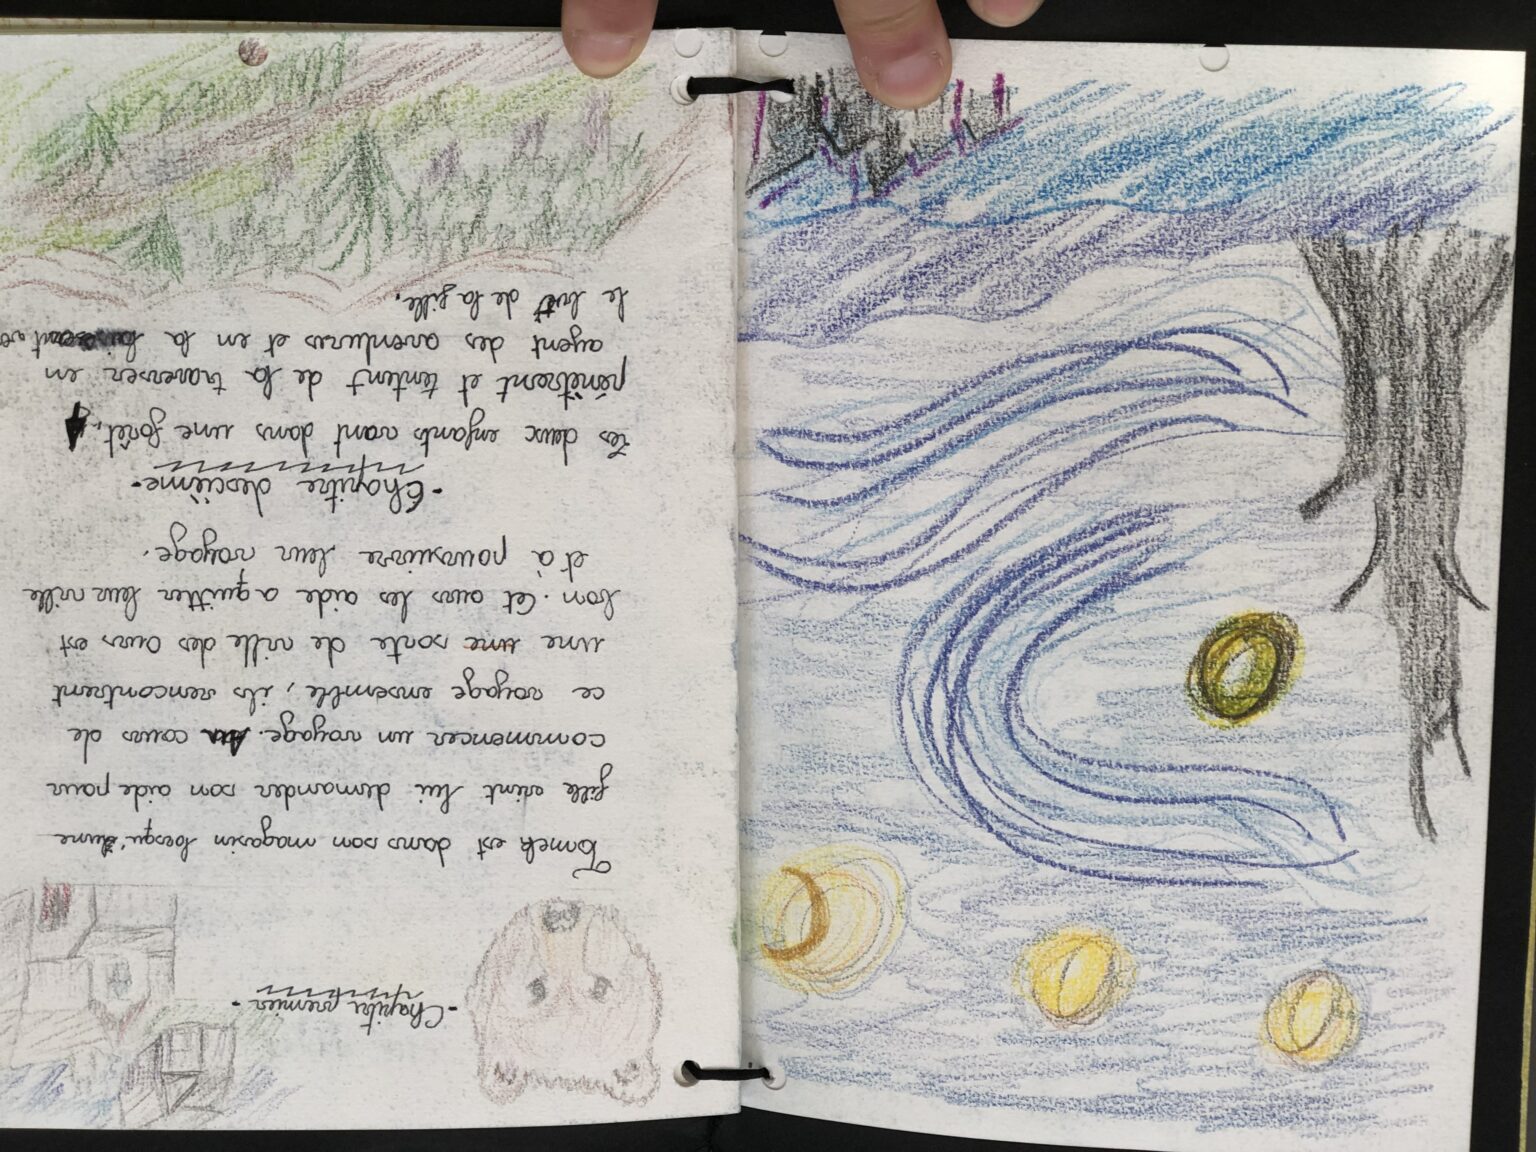 -Chapitre premier-
Tomek est dans son magasin lorsqu'une
fille vient lui demander son aide pour
commencer un voyage. Au cours de
ce voyage ensemble, ils rencontrent
une une sorte de ville des Ours est
bon. Cet ours les aide a quitter leur ville
et à poursuivre leur voyage.
-Chapitre descième-
Les deux enfants vont dans une forêt,
pénètrent et tentent de la traverser en
ayent des aventures et en la
le but de la fille.